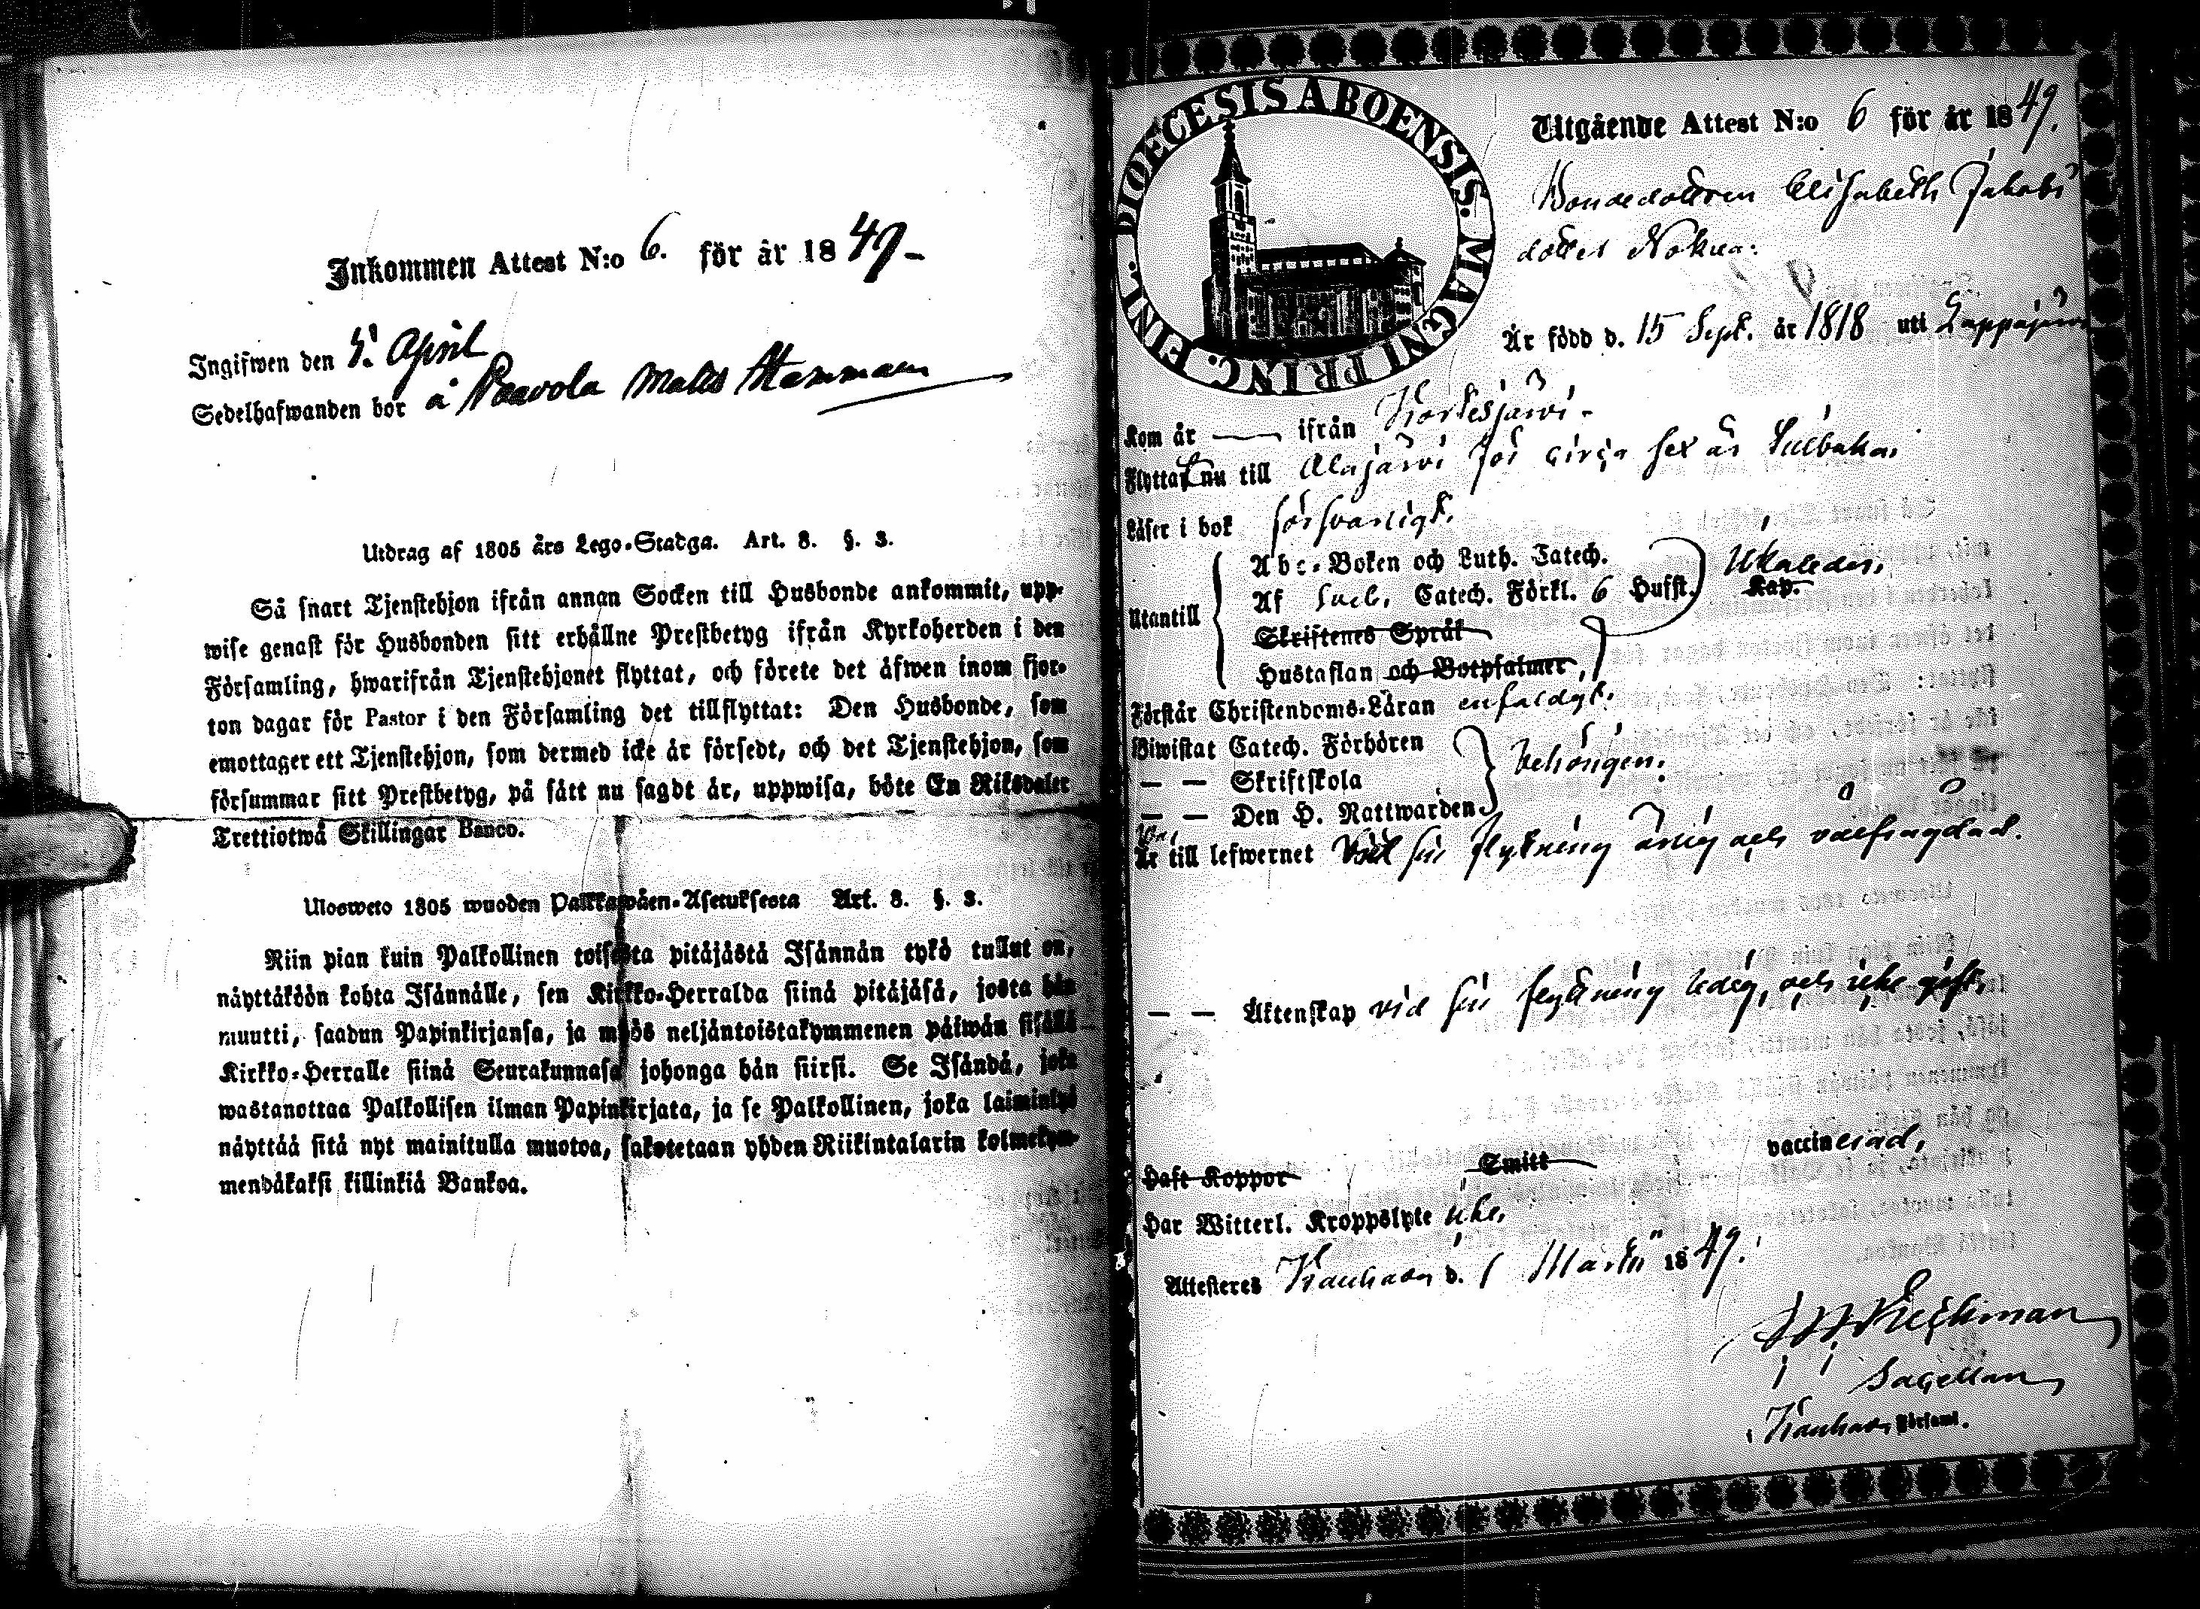 Inkommen Attest N:o 6. för år 1849-
Ingifwen den 5. April
Sedelhafwanden bor å Paavola Matts
Utdrag af 1805 års Lego-Stadga. Art. 8. §. 3.
Så snart Tjenstehjon ifrån annan Socken till Husbonde ankommit, upp-
wise genast för Husbonden sitt erhållne Prestbetyg ifrån Kyrkoherden i den
Församling, hwarifrån Tjenstehjonet flyttat, och förete det äfwen inom fjor-
ton dagar för Pastor i den Församling det tillflyttat: Den Husbonde, som
emottager ett Tjenstehjon, som dermed icke är försedt, och det Tjenstehjon, som
försummar sitt Prestbetyg, på sätt nu sagdt är, uppwisa, böte En Riksdaler
Trettiotwå Skillingar Banco.
Ulosweto 1805 wuoden Palkkawäen-Asetuksesta Art. 8. §. 3.
Niin pian kuin Palkollinen toisesta pitäjästä Isännän tykö tullut on,
näyttäköön kohta Isännälle, sen Kirkko-Herralda siinä pitäjäsä, josta hän
muutti, saadun Papinkirjansa, ja myös neljäntoistakymmenen päiwän sisällä
Kirkko-Herralle siinä Seurakunnasa johonga hän siirsi. Se Isändä, joka
wastanottaa Palkollisen ilman Papinkirjata, ja se Palkollinen, joka laiminlyö
näyttää sitä nyt mainitulla muotoa, sakotetaan yhden Riikintalarin kolmekym-
mendäkaksi killinkiä Bankoa.
DIOECESIS ABOENSIS. MAGNI PRINC. FINL.
Utgående Attest N:o 6 för år 1849.
Bondedottren Elisabeth Jakobs
dotter Nokua.
Är född d. 15 Sept. år 1818 uti Lappajärvi
Kom år — ifrån Kortesjärvi.
Flyttat nu till Alajärvi för circa sex år tillbaka.
Läser i bok försvarligt.
Utantill
Abc-Boken och Luth. Catech.
Af Catech. Förkl. 6 Hufst. Kap.
Skriftenes Språk
Hustaflan och Botpsalmer,
Förstår Christendoms-Läran enfaldigt.
Biwistat Catech. Förhören
— — Skriftskola
— — Den H. Nattwarden
behörigen.
Är till lefwernet vid sin flyttning ärlig och välfrägdad.
— — Äktenskap vid sin flyttning ledig, och icke gift.
Haft Koppor Smitt vaccinerad,
Har Witterl. Kroppslyte icke,
Attesteres Kauhava d. 1 Martii 1849.
Sacellan
i Kauhava Församl.